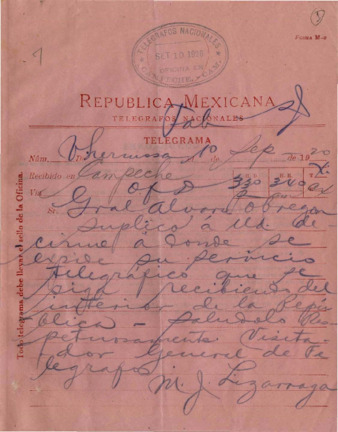 Forma M-6
TELEGRAFOS NACIONALES
SET. 10 1920
OFICINA EN
CAMPECHE, CAM.
REPUBLICA MEXICANA
TELEGRAFOS NACIONALES
Tab
TELEGRAMA
Núm. D Vhermosa 10 de Sep de 1920
Recibido en Campeche
Vía Ofs D 330 340
Sr. Gral Alvaro Obregon
Suplico a Ud. de-
cirme a donde se
expide su servicio
telegráfico que se
siga recibiendo del
interior de la Repú-
blica - saludolo Res
petuosamente Visita-
dor General de Te-
legrafos
M. J. Lizarraga
Todo telegrama debe llevar el sello de la Oficina.